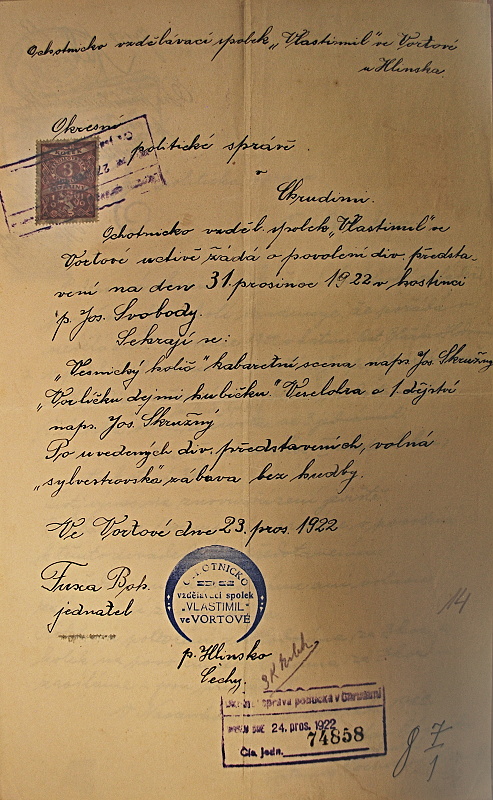 Ochotnicko vzdělávací spolek „Vlastimil" ve Vortové
u Hlinska
Okresní
politické správě
v
Chrudimi.
Ochotnicko vzděl. spolek „Vlastimil" ve
Vortové uctivě žádá o povolení div. předsta-
vení na den 31. prosince 1922 v hostinci
p. Jos. Svobody.
Sehrají se:
„Vesnický holič" kabaretní scena naps. Jos. Skružný
„Vorlíčku dej mi hubičku" Veselohra o 1 dějství
naps. Jos. Skružný
Po uvedených div. představeních, volná
„sylvestrovská" zábava bez hudby.
Ve Vortové dne 23. pros. 1922
Fuxa Boh.
jednatel
OCHOTNICKO
vzdělávací spolek
„VLASTIMIL"
ve VORTOVÉ
p. Hlinsko
Čechy.
správa politická v Chrudimi
dne 24. pros. 1922
Čís. jedn. 74858
14
8 7/1
3